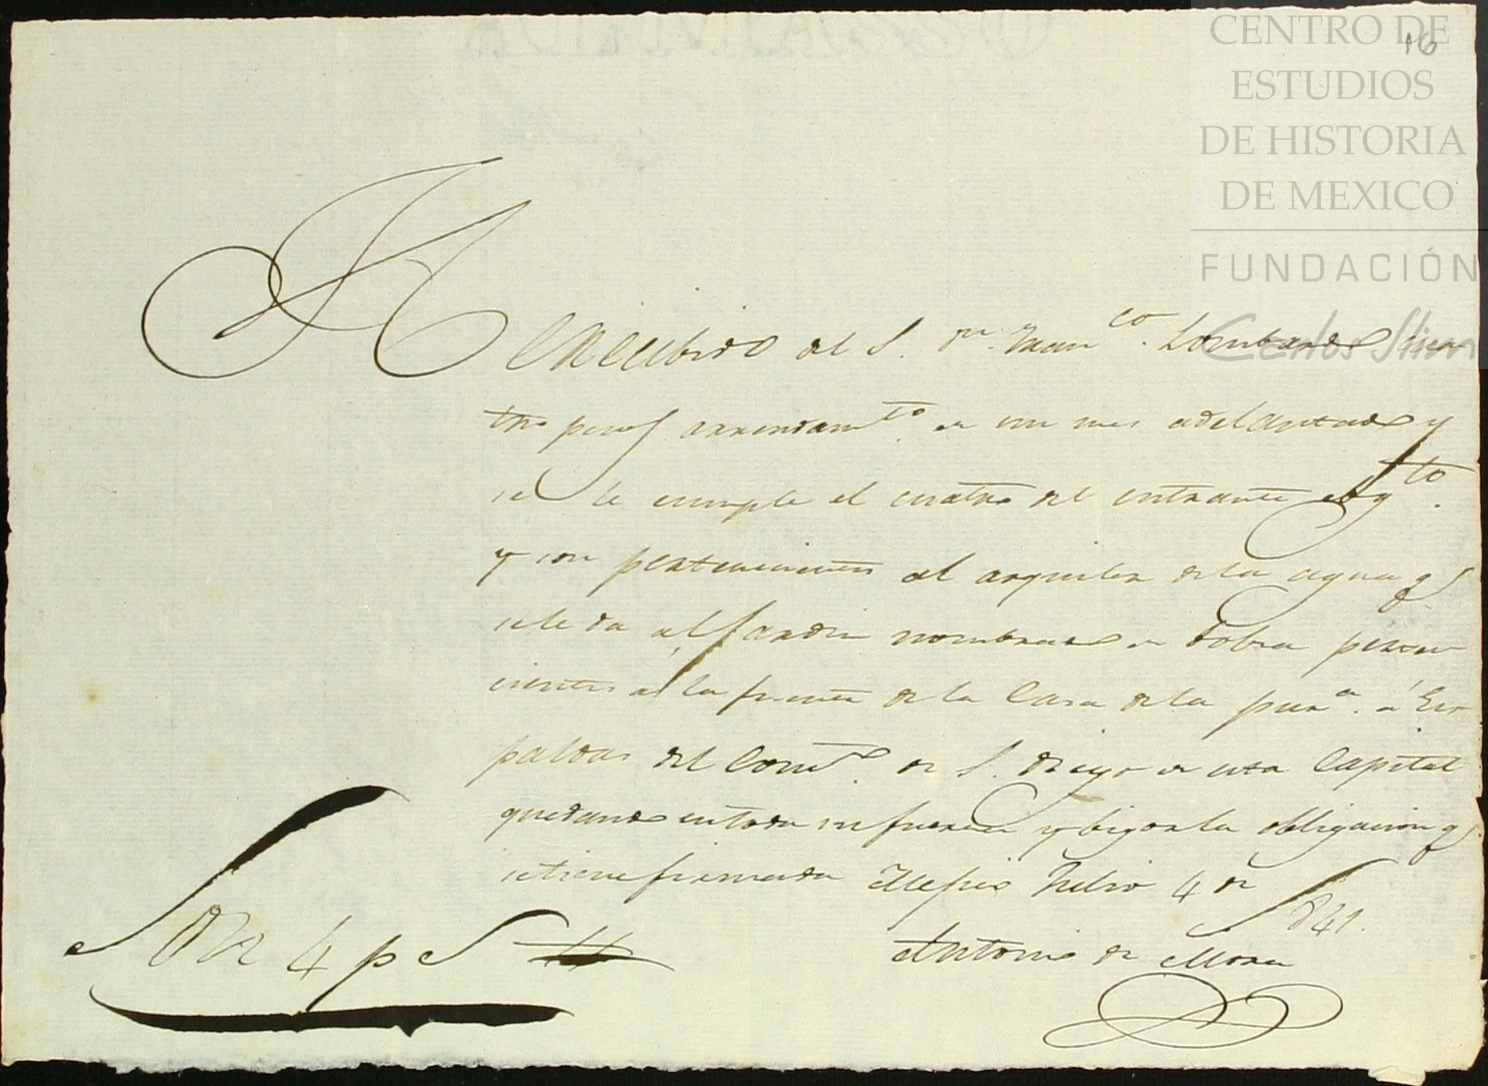 CENTRO DE
ESTUDIOS
DE HISTORIA
DE MEXICO
FUNDACIÓN
Carlos Slim
16
He Recibido del S. Dn. Franco. Lombardo cua
tro pesos arrendamto. de un mes adelantado y
se le cumple el cuatro del entrante Agto.
y son pertenecientes al arquiler de la agua qe
se le da al Jardin nombrado de Tobra pertene
cientes a la fuente de la Casa de la pura. á Es
paldas del Convto. de S. Diego de esta Capital
quedando en toda su fuerza y bigor la obligacion qe
se tiene firmada Mejico Julio 4 de
1841.
Antonio de Mora
Son 4 ps